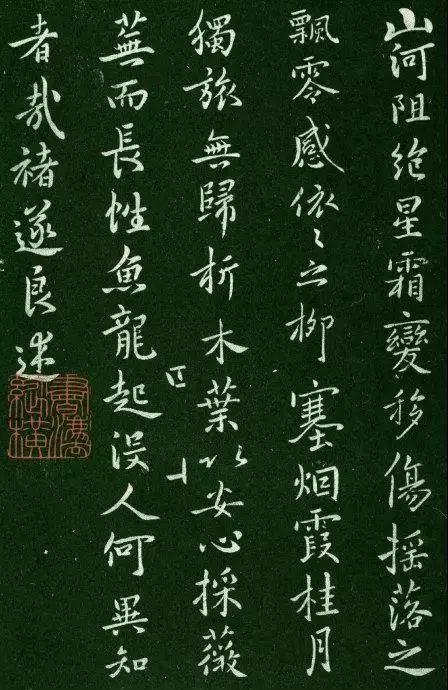 山河阻絕星霜變移傷搖落之
飄零感依〻之柳塞烟霞桂月
獨旅無歸析木葉以安心採薇
蕪而長性魚龍起沒人何異知
者哉褚遂良述